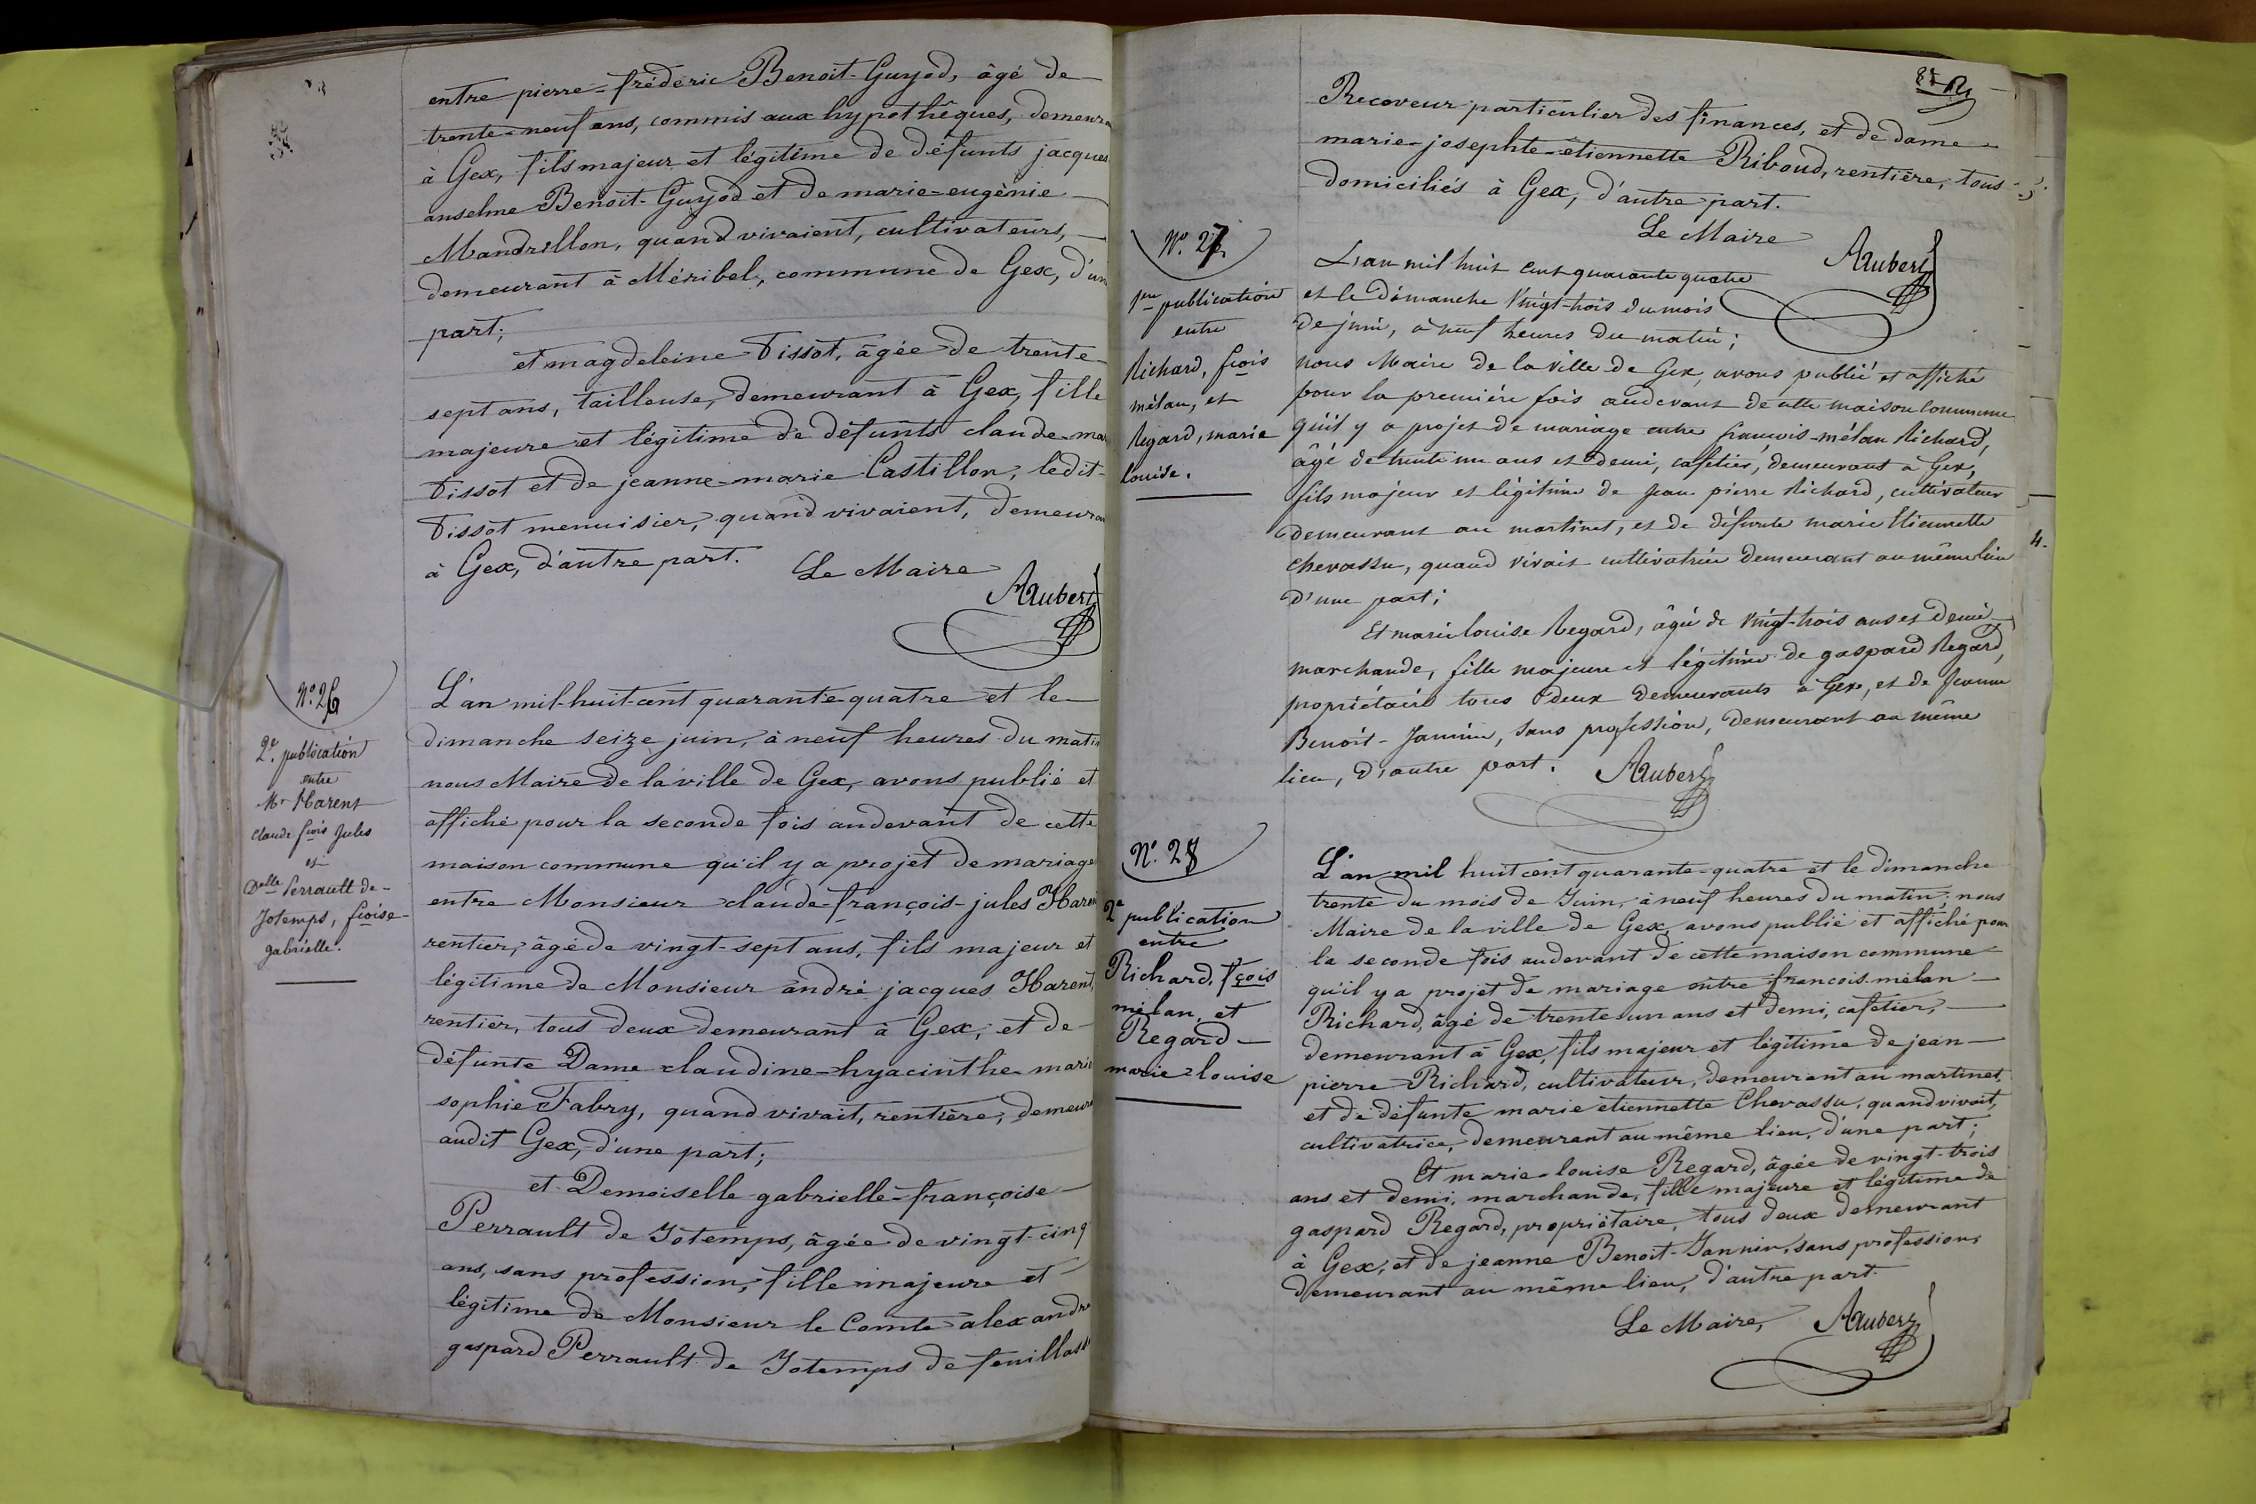 entre pierre-frédéric Benoit-Guyod, âgé de
trente-neuf ans, commis aux hypothêques, demeura
à Gex, fils majeur et légitime de défunts jacques
anselme Benoit-Guyod et de marie-eugènie
Mandrillon, quand vivaient, cultivateurs,
demeurant à Méribel, commune de Gex, d'un
part;
et magdeleine Tissot, âgée de trente
sept ans, tailleuse, demeurant à Gex, fille
majeure et légitime de défunts claude-ma
Tissot et de jeanne-marie Castillon, ledit
Tissot menuisier, quand vivaient, demeura
à Gex, d'autre part.
Le Maire
Aubert
N.º 26
2.e publication
entre
Mr Harent
claude fcois Jules
et
Delle Perrault de-
Jotemps, fcoise-
gabrielle.
L'an mil-huit-cent quarante-quatre et le
dimanche seize juin, à neuf heures du mati
nous Maire de la ville de Gex, avons publié et
affiché pour la seconde fois audevant de cette
maison commune qu'il y a projet de mariage
entre Monsieur claude-françois-jules Haren
rentier, âgé de vingt-sept ans, fils majeur et
légitime de Monsieur andré jacques Harent,
rentier, tous deux demeurant à Gex, et de
défunte Dame claudine-hyacinthe-marie
sophie Fabry, quand vivait, rentière, demeura
audit Gex, d'une part;
et Demoiselle gabrielle-françoise
Perrault de Jotemps, âgée de vingt-cinq
ans, sans profession, fille majeure et
légitime de Monsieur le Comte alexandre
gaspard Perrault de Jotemps de feuillass
Receveur particulier des finances, et de dame
marie-josephte-étiennette Riboud, rentière, tous
domiciliés à Gex, d'autre part.
Le Maire
Aubert
N.º 27
1ere publication
entre
Richard, fcois
mélan, et
Regard, marie
louise.
L'an mil huit cent quarante quatre
et le dimanche vingt-trois du mois
de juin, à neuf heures du matin;
nous Maire de la ville de Gex, avons publié et affiché
pour la première fois audevant de cette maison commune
qu'il y a projet de mariage entre françois-mélan Richard,
âgé de trente un ans et demi, cafetier, demeurant à Gex,
fils majeur et légitime de Jean pierre Richard, cultivateur
demeurant au martinet, et de défunte marie Etiennette
Chevassu, quand vivait cultivatrice demeurant au même lieu
d'une part;
Et marie louise Regard, âgée de vingt-trois ans et demi
marchande, fille majeure et légitime de gaspard Regard,
propriétaire tous deux demeurants à Gex, et de Jeanne
Benoit-Jannin, sans profession, demeurant au même
lieu, d'autre part.
Aubert
N.º 28
2e publication
entre
Richard, fçois
mélan, et
Regard-
marie-louise
L'an mil huit cent quarante-quatre et le dimanche
trente du mois de Juin, à neuf heures du matin, nous
Maire de la ville de Gex, avons publié et affiché pour
la seconde fois audevant de cette maison commune
qu'il y a projet de mariage entre francois-mélan
Richard, âgé de trente-un ans et demi, cafetier,
demeurant à Gex, fils majeur et légitime de jean-
pierre Richard, cultivateur, demeurant au martinet,
et de défunte marie etiennette Chevassu, quand vivait,
cultivatrice, demeurant au même lieu, d'une part;
Et marie-louise Regard, âgée de vingt-trois
ans et demi, marchande, fille majeure et légitime de
gaspard Regard, propriétaire, tous deux demeurant
à Gex, et de jeanne Benoit-Jannin, sans profession,
demeurant au même lieu, d'autre part.
Le Maire,
Aubert